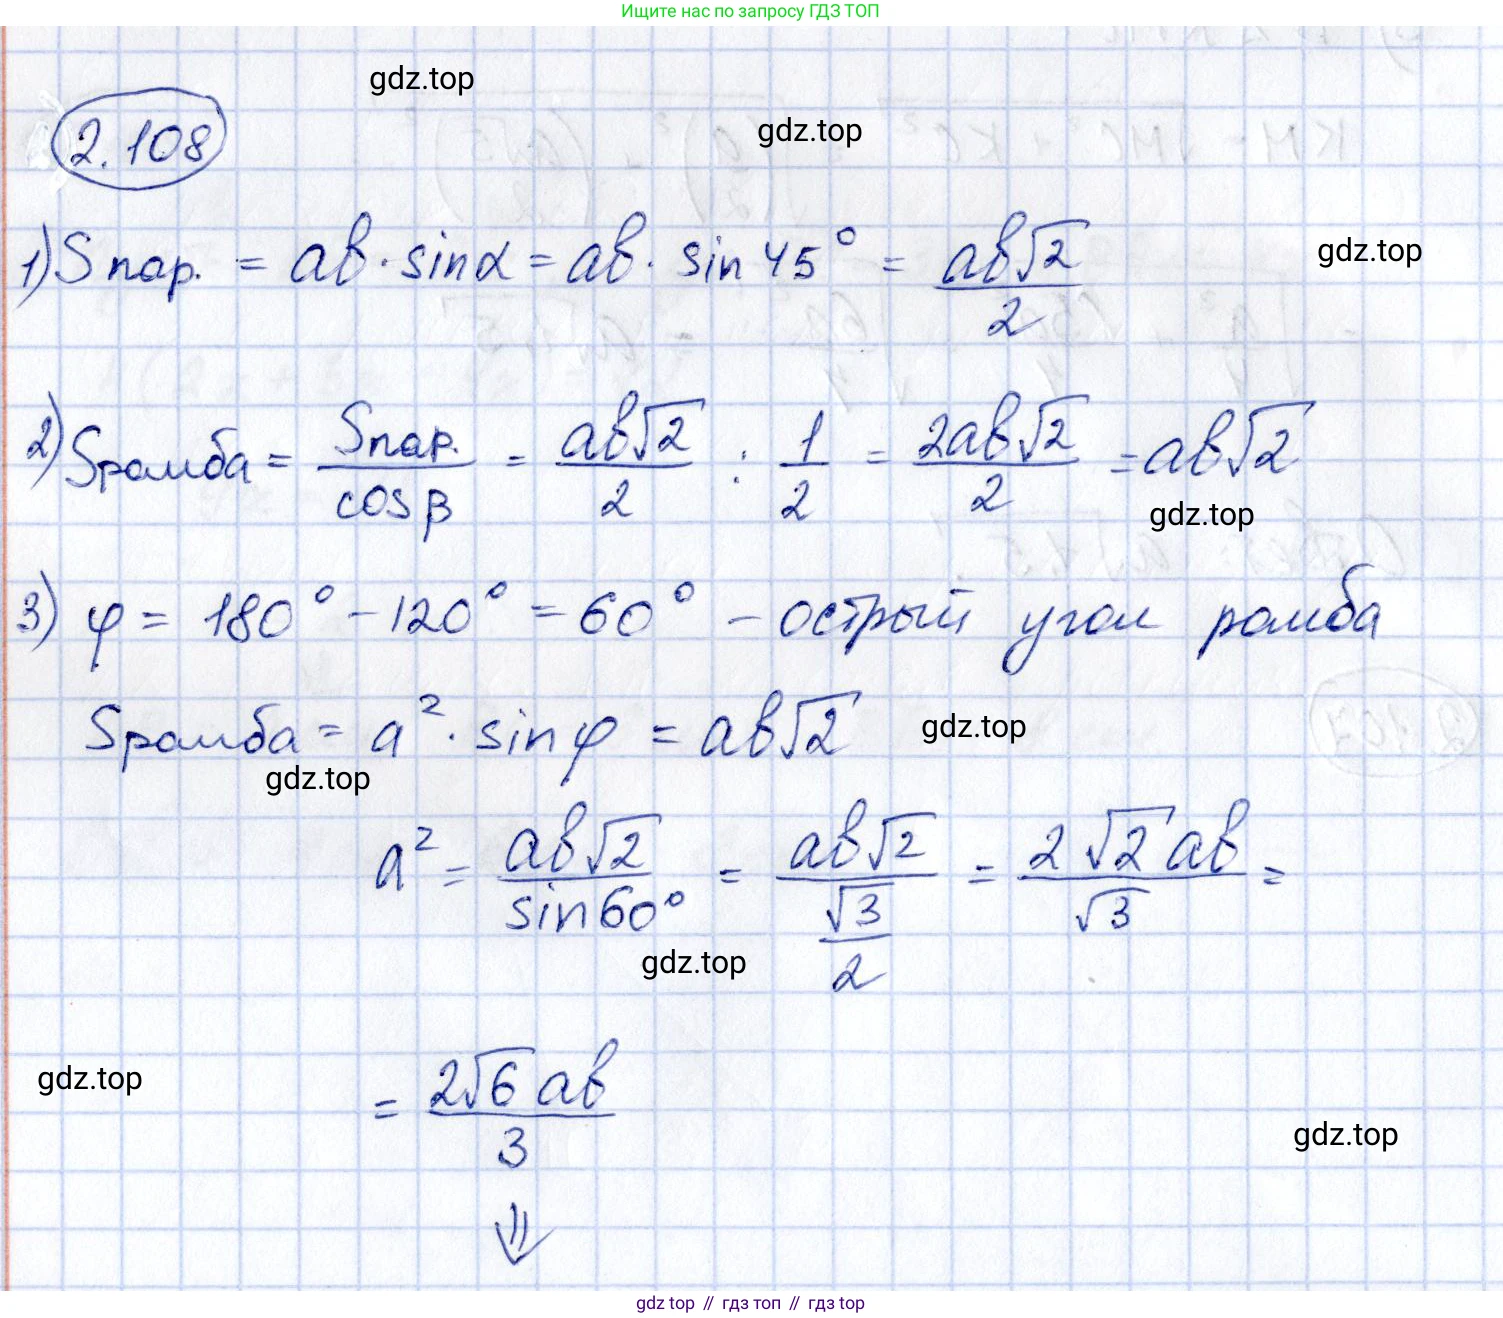 Ищите нас по запросу ГДЗ ТОП
gdz.top
2.108
gdz.top
1) Sпар. = ab · sinα = ab · sin 45° = ab√2/2
gdz.top
2) Sромба = Sпар./cosβ = ab√2/2 : 1/2 = 2ab√2/2 = ab√2
gdz.top
3) φ = 180° - 120° = 60° - острый угол ромба
Sромба = a² · sinφ = ab√2
gdz.top
gdz.top
a² = ab√2/sin60° = ab√2/(√3/2) = 2√2ab/√3 =
gdz.top
gdz.top
= 2√6ab/3
gdz.top
⇓
gdz top // гдз топ // гдз top